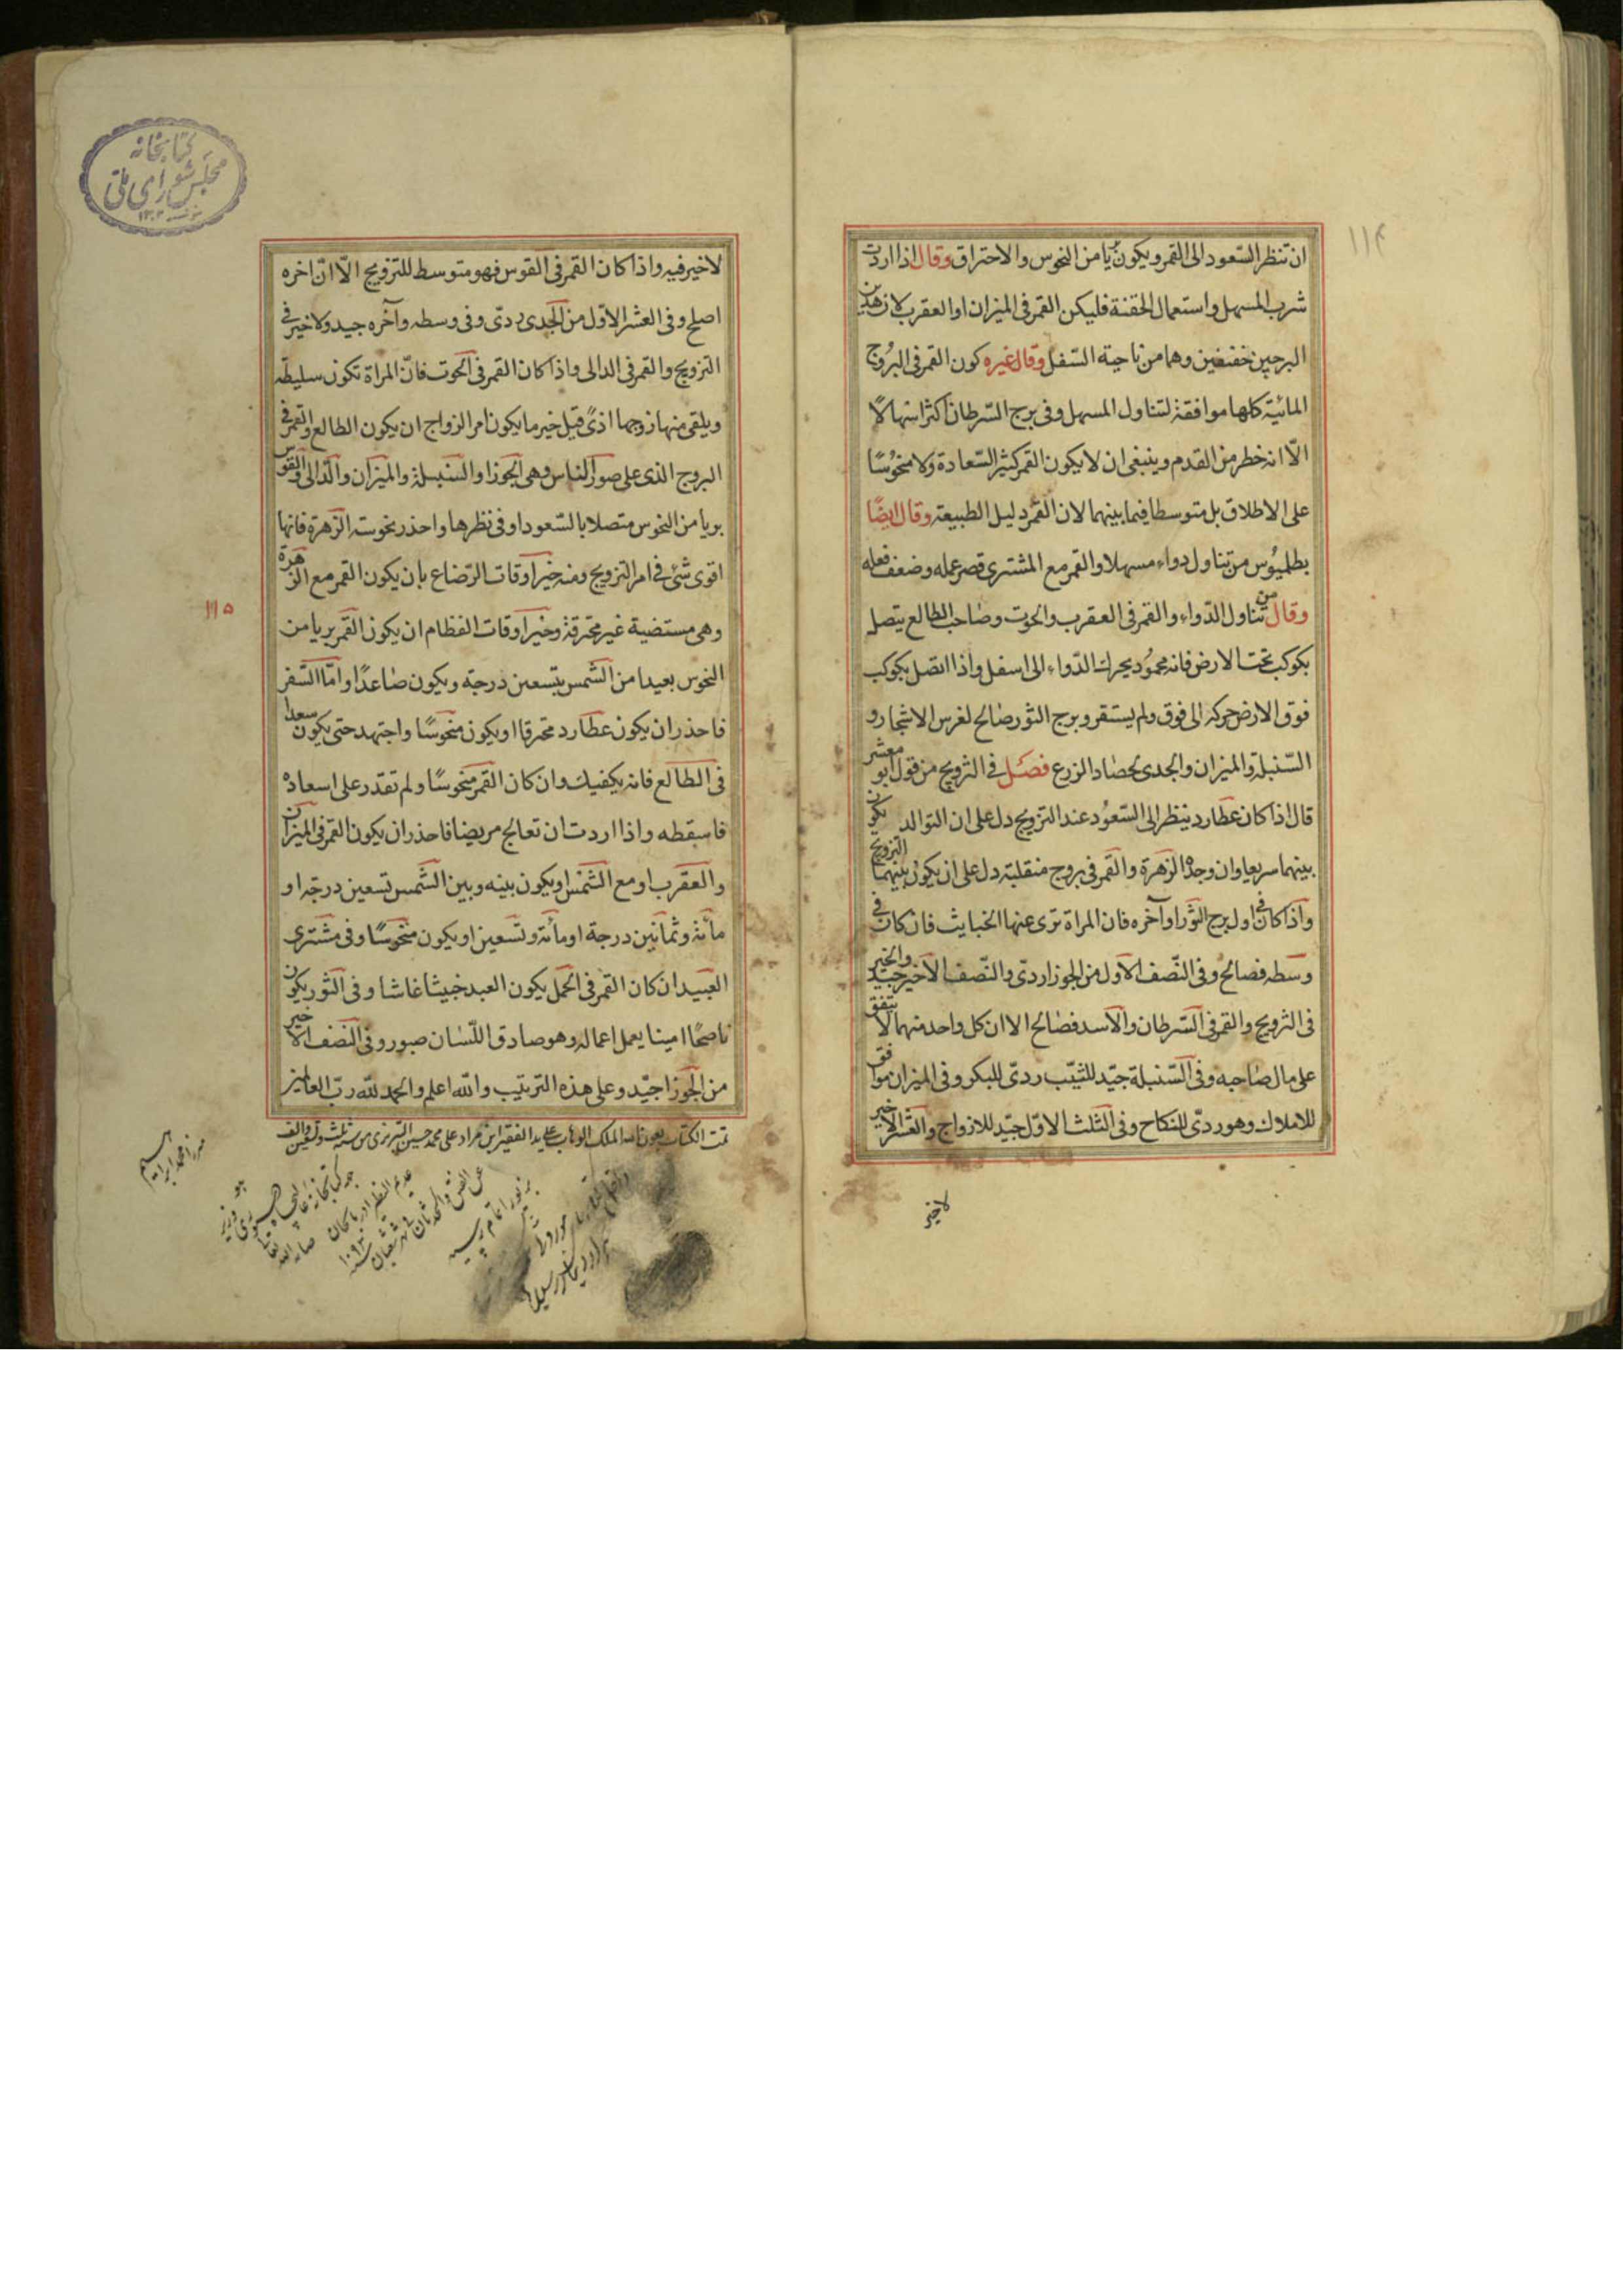 ١١٤
ان تنظر السّعود الى القمر ويكون بريا من النحوس والاحتراق وقال اذا اردت
شرب المسهل واستعمال الحقنة فليكن القمر فى الميزان او العقرب لان هذين
البرجين خفيفين وهما من ناحية السّفل وقال غيره كون القمر فى البرُوج
المائيّة كلها موافقة لتناول المسهل وفى برج السّرطان اكثر اسهالًا
الّا انه خطر من القدم وينبغى ان لا يكون القمر كثير السّعادة ولا منحُوسًا
على الاطلاق بل متوسطا فيما بينهما لان القمر دليل الطبيعة وقال ايضًا
بطلميُوس من تناول دواء مسهلا والقمر مع المشترى قصر عمله وضعف فعله
وقال من تناول الدّواء والقمر فى العقرب والحوت وصاحب الطالع يتصل
بكوكب تحت الارض فانه محمُود يحرك الدّواء الى اسفل واذا اتصل بكوكب
فوق الارض حركه الى فوق ولم يستقر وبرج الثور صالح لغرس الاشجار و
السّنبلة والميزان والجدى لحصاد الزرع فصَل فى التزويج من قول ابو معشر
قال اذا كان عطارد ينظر الى السّعُود عند التزويج دل على ان التوالد يكون
بينهما سريعا وان وجد الزهرة والقمر فى بروج منقلبة دل على ان يكون بينهما التزويج
واذا كان فى اول برج الثور او آخره فان المراة ترى عنها الخبايث فان كان فى
وسطه فصالح وفى النّصف الاول من الجوزا ردىّ والنّصف الاخير جيد والخير
فى التزويج والقمر فى السّرطان والاسد فصالح الا ان كل واحد منهما لا يتفق
على مال صاحبه وفى السّنبلة جيّد للثيّب ردىّ للبكر وفى الميزان موافق
للاملاك وهو ردىّ للنكاح وفى الثلث الاوّل جيّد للازواج والعشر الاخير
لاخير
كتابخانه
مجلس شوراى ملّى
لا خير فيه واذا كان القمر فى القوس فهو متوسط للتزويج الّا انّ اخره
اصلح وفى العشر الاوّل من الجدى ردىّ وفى وسطه وآخره جيد ولا خير فى
التزويج والقمر فى الدالى واذا كان القمر فى الحوت فانّ المراة تكون سليطة
ويلقى منها زوجها اذىً قيل خير ما يكون امر الزواج ان يكون الطالع والقمر فى
البروج الذى على صور الناس وهى الجوزا والسّنبلة والميزان والدّالى والقوس
بريا من النحوس متصلا بالسّعود او فى نظرها واحذر نحوسة الزهرة فانها
اقوى شئ فى امر التزويج ومنه خير اوقات الرّضاع بان يكون القمر مع الزهرة
وهى مستضية غير محترقة وخير اوقات الفطام ان يكون القمر بريا من
النحوس بعيدا من الشمس بتسعين درجة ويكون صاعدًا وامّا السّفر
فاحذر ان يكون عطارد محترقا او يكون منحوسًا واجتهد حتى يكون سعدا
فى الطالع فانه يكفيك وان كان القمر منحوسًا ولم تقدر على اسعاده
فاسقطه واذا اردت ان تعالج مريضا فاحذر ان يكون القمر فى الميزان
والعقرب او مع الشمس او يكون بينه وبين الشمس تسعين درجة او
مائة وثمانين درجة او مائة وتسعين او يكون منحوسًا وفى مشترى
العبيد ان كان القمر فى الحمل يكون العبد خبيثا غاشا وفى الثور يكون
ناصحًا امينا يعمل اعماله وهو صادق اللّسان صبور وفى النصف الاخير
من الجوزا جيّد وعلى هذه الترتيب والله اعلم والحمد لله ربّ العالمين
١١٥
تمت الكتاب بعون الله الملك الوهاب على يد الفقير ابن مراد على محمد حسين التبريزى
ميرزا محمد ابراهيم
١٠٩٣